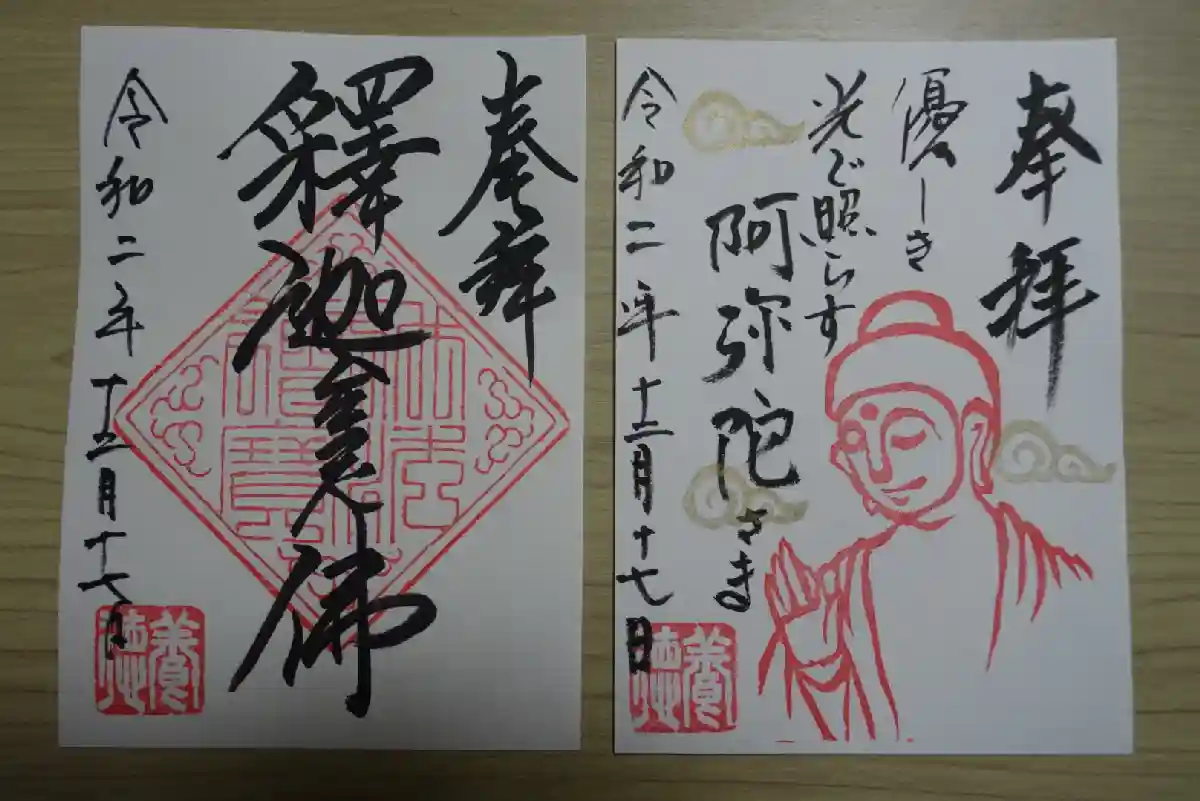 奉拝
釋迦牟尼佛
令和二年十二月十七日
奉拝
優しき
光で照らす
阿弥陀さま
令和二年十二月十七日